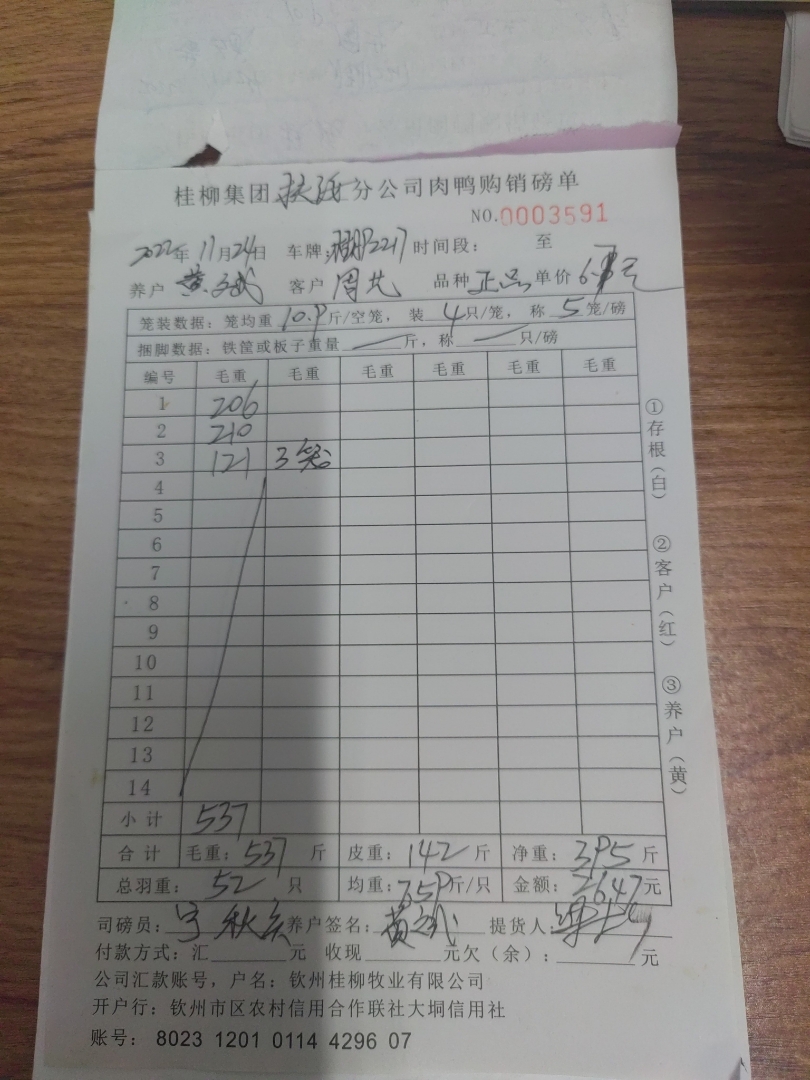 桂柳集团 分公司肉鸭购销磅单
NO.0003591
2022年11月24日 车牌: 2217 时间段: 至
养户 黄 斌 客户 周 品种 正品 单价 元
笼装数据: 笼均重 10.9 斤/空笼, 装 4 只/笼, 称 5 笼/磅
捆脚数据: 铁筐或板子重量 — 斤, 称 — 只/磅
编号 毛重 毛重 毛重 毛重 毛重 毛重
1 206
2 210
3 121 3笼
4
5
6
7
8
9
10
11
12
13
14
小计 537
合计 毛重: 537 斤 皮重: 142 斤 净重: 395 斤
总羽重: 52 只 均重: 斤/只 金额: 2647 元
司磅员: 养户签名: 黄 斌 提货人:
付款方式: 汇 元 收现 元欠(余): 元
公司汇款账号, 户名: 钦州桂柳牧业有限公司
开户行: 钦州市区农村信用合作联社大垌信用社
账号: 8023 1201 0114 4296 07
①存根(白)
②客户(红)
③养户(黄)